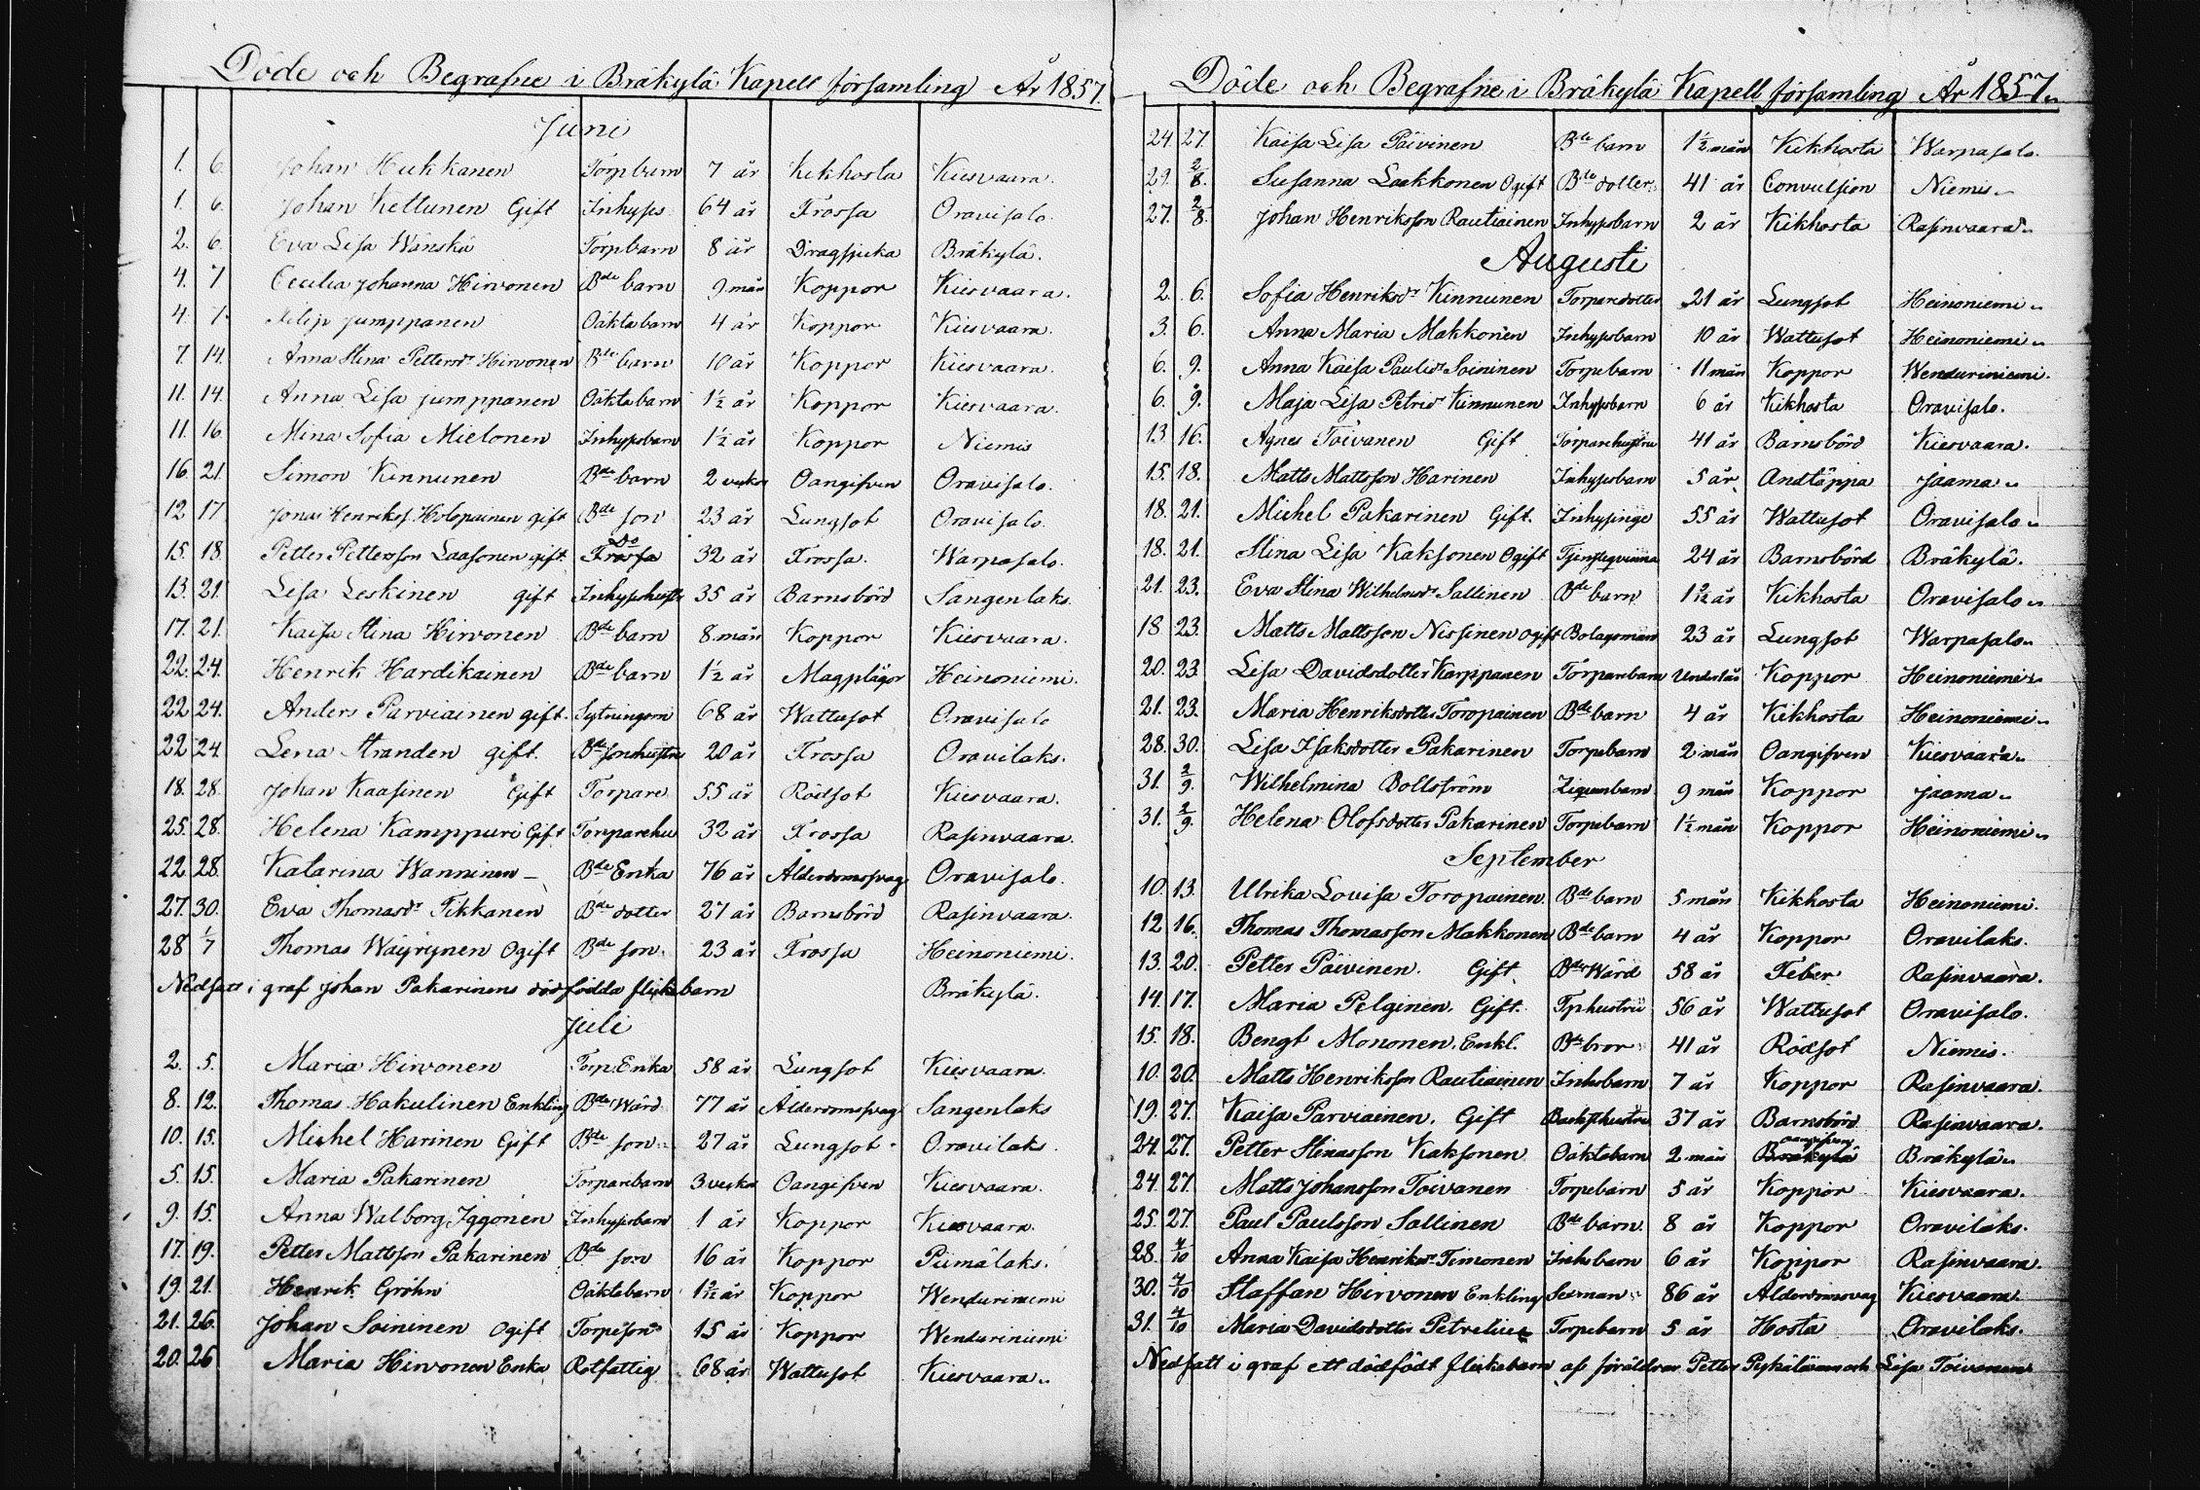 Döde och Begrafne i Bräkylä Kapell församling År 1857.
Juni
1. 6. Johan Hukkanen Torpbarn 7 år Kikhosta Kiesvaara.
1. 6. Johan Kettunen Gift Inhyss 64 år Frossa Oravisalo.
2. 6. Eva Lisa Wänskä Torpbarn 8 år Dragsjuka Bräkylä.
4. 7 Cecilia Johanna Hirvonen Bde barn 9 mån Koppor Kiesvaara.
4. 7. Filip Jumppanen Oäktabarn 4 år Koppor Kiesvaara.
7. 14. Anna Stina Pettersdr Hirvonen Bde barn 10 år Koppor Kiesvaara.
11. 14. Anna Lisa Jumppanen Oäktabarn 1½ år Koppor Kiesvaara.
11. 16. Mina Sofia Mielonen Inhypsbarn 1½ år Koppor Niemis
16. 21. Simon Kinnunen Bde barn 2 veckor Oangifven Oravisalo.
12 17 Jonas Henrikss. Holopainen gift Bde son 23 år Lungsot Oravisalo.
15. 18. Petter Pettersson Laasonen gift Do Frossa 32 år Frossa. Warpasalo.
13. 21. Lisa Leskinen gift Inhypshustr 35 år Barnsbörd Sangenlaks.
17. 21. Kaisa Stina Hirvonen Bde barn 8 mån Koppor Kiesvaara.
22. 24. Henrik Hardikainen Bde barn 1½ år Magplågor Heinoniemi.
22 24. Anders Parviainen gift. Sytningsm 68 år Wattusot Oravisalo
22 24. Lena Stranden gift. Bde Sonhustru 20 år Frossa Oravilaks.
18. 28. Johan Kaasinen Gift Torpare 55 år Rödsot Kiesvaara.
25. 28. Helena Kamppuri Gift Torparehu 32 år Frossa Rasinvaara.
22 28. Katarina Wanninen Bde Enka 76 år Ålderdomsvag Oravisalo.
27. 30. Eva Thomasdr Tikkanen Bde dotter 27 år Barnsbörd Rasinvaara.
28 1/7 Thomas Wäyrynen Ogift Bde son. 23 år Frossa Heinoniemi.
Nedsatt i graf Johan Pakarinens dödfödda flickebarn Bräkylä.
Juli
2. 5. Maria Hirvonen Torp Enka 58 år Lungsot Kiesvaara.
8. 12. Thomas Hakulinen Enkling Bde Wärd 77 år Ålderdomsvag Sangenlaks
10. 15. Michel Harinen Gift Bde son 27 år Lungsot Oravilaks
5. 15. Maria Pakarinen Torparebarn 3 veckor Oangifven Kiesvaara.
9. 15. Anna Walborg Iggonen Inhypsbarn 1 år Koppor Kiesvaara.
17. 19. Petter Mattsson Pakarinen Bde son 16 år Koppor Piimälaks.
19. 21. Henrik Gröhn Oäktabarn 1½ år Koppor Wendurinmi
21. 26. Johan Soininen Ogift Torpeson 15 år Koppor Wenduriniemi
20. 26 Maria Hirvonen Enka Rotfattig 68 år Wattusot Kiesvaara.
Döde och Begrafne i Bräkylä Kapell församling År 1857.
24. 27. Kaisa Lisa Päivinen Bde barn 1½ mån Kikhosta Warpasalo.
29. 2/8. Susanna Laakkonen Ogift Bde dotter 41 år Convulsion Niemis.
27. 2/8. Johan Henriksson Rautiainen Inhypsbarn 2 år Kikhosta Rasinvaara.
Augusti
2. 6. Sofia Henriksdr Kinnunen Torparedotter 21 år Lungsot Heinoniemi.
3. 6. Anna Maria Makkonen Inhypsbarn 10 år Wattusot Heinoniemi.
6. 9. Anna Kaisa Paulsdr Soininen Torpebarn 11 mån Koppor Wenduriniemi.
6. 9. Maja Lisa Petrisdr Kinnunen Inhypsbarn 6 år Kikhosta Oravisalo.
13 16. Agnes Toivanen Gift Torparehustru 41 år Barnsbörd Kiesvaara.
15. 18. Matts Mattsson Harinen Inhypsbarn 5 år Andtäppa Jaama.
18. 21. Michel Pakarinen Gift. Inhysinge 55 år Wattusot Oravisalo.
18. 21. Stina Lisa Kaksonen Ogift Tjenstqvinna 24 år Barnsbörd Bräkylä.
21. 23. Eva Stina Wilhelmsdr Sallinen Bde barn 1½ år Kikhosta Oravisalo.
18 23. Matts Mattsson Nissinen ogift Bolagsman 23 år Lungsot Warpasalo.
20. 23. Lisa Davidsdotter Karppanen Torparebarn Koppor Heinoniemi.
21. 23. Maria Henriksdotter Toropainen Bde barn 4 år Kikhosta Heinoniemi.
28. 30. Lisa Isaksdotter Pakarinen Torpebarn 2 mån Oangifven Kiesvaara.
31. 2/9. Wilhelmina Bollström 9 mån Koppor Jaama.
31. 2/9. Helena Olofsdotter Pakarinen Torpebarn 1½ mån Koppor Heinoniemi.
September
10. 13. Ulrika Lovisa Toropainen. Bde barn 5 mån Kikhosta Heinoniemi.
12 16. Thomas Thomasson Makkonen Bde barn 4 år Koppor Oravilaks.
13. 20. Petter Päivinen. Gift Bde Wärd 58 år Feber Rasinvaara.
14. 17. Maria Pelginen. Gift. Tphustru 56 år Wattusot Oravisalo.
15. 18. Bengt Mononen. Enkl. Bde bror 41 år Rödsot Niemis.
10. 20. Matts Henriksson Rautiainen Inhsbarn 7 år Koppor Rasinvaara.
19. 27. Kaisa Parviainen. Gift 37 år Barnsbörd Rasinvaara.
24. 27. Petter Stinasson Kaksonen Oäktabarn 2 mån oangifven Bräkylä Bräkylä.
24. 27. Matts Johansson Toivanen Torpebarn 5 år Koppor Kiesvaara.
25. 27. Paul Paulsson Sallinen Bde barn. 8 år Koppor Oravilaks.
28. 4/10 Anna Kaisa Henriksdr Timonen Inhsbarn 6 år Koppor Rasinvaara.
30. 4/10 Staffan Hirvonen Enkling Sexman 86 år Ålderdomsvag Kiesvaara.
31. 4/10 Maria Davidsdotter Torpebarn 5 år Hosta Oravilaks.
Nedsatt i graf ett dödfödt flickebarn af föräldrar Petter och Lisa Toivanen